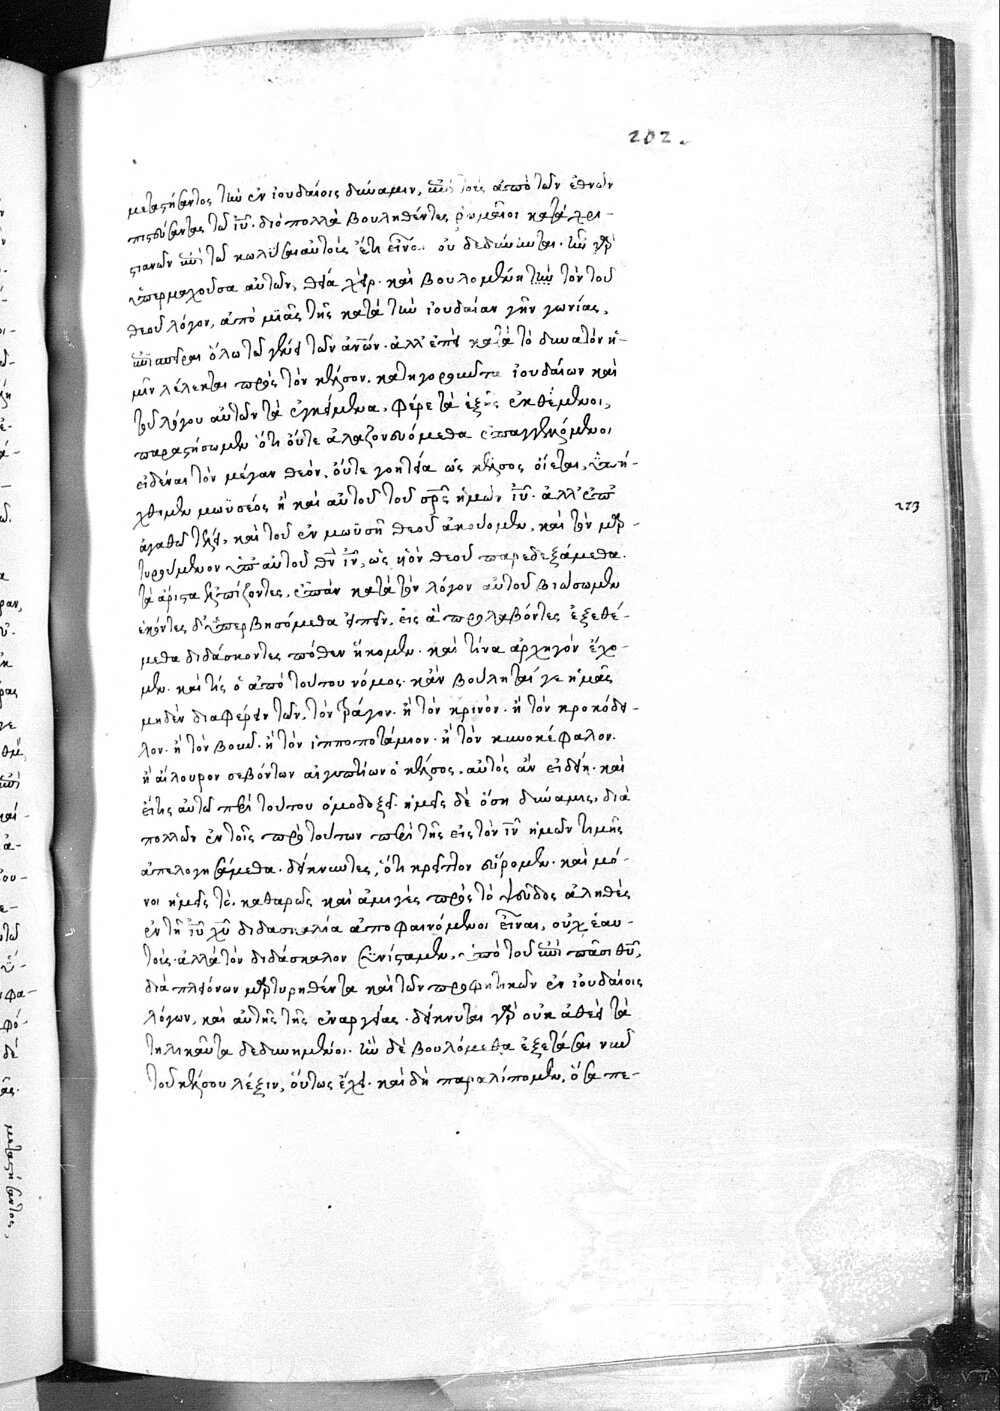 202.
μεταστήσαντος τὴν ἐν ἰουδαίοις δύναμιν, ἐπὶ τοὺς ἀπὸ τῶν ἐθνῶν
πιστεύσαντας τῶ ἰυ̅. διὸ πολλὰ βουληθέντες ῥωμαῖοι κατὰ χρι-
στιανῶν ἐπὶ τῶ κωλῦσαι αὐτοὺς ἔτι εἶναι οὐ δεδύνηνται. ἦν γὰρ
ὑπερμαχοῦσα αὐτῶν, θεία χείρ. καὶ βουλομένη τὸν τοῦ
θεοῦ λόγον, ἀπὸ μιᾶς τῆς κατὰ τὴν ἰουδαίαν γῆν γωνίας,
ἐπισπεῖραι ὅλω τῶ γένει τῶν ἀν̅ων̅. ἀλλ' ἐπεὶ κατὰ τὸ δυνατὸν ἡ-
μῖν λέλεκται πρὸς τὸν κέλσον, κατηγοροῦντα ἰουδαίων καὶ
τοῦ λόγου αὐτῶν τὰ ἐγκείμενα, φέρε τὰ ἑξῆς ἐκθέμενοι,
παραστήσωμεν ὅτι οὔτε ἀλαζονευόμεθα ἐπαγγελλόμενοι
εἰδέναι τὸν μέγαν θεόν, οὔτε γοητεία ὡς κέλσος οἴεται, ὑπή-
χθημεν μωϋσέος ἢ καὶ αὐτοῦ τοῦ σρ̅ς ἡμῶν ἰυ̅. ἀλλ' ἐπ'
273
ἀγαθῶ τέλει, καὶ τοῦ ἐν μωϋσῆ θεοῦ ἀκούομεν, καὶ τὸν μαρ-
τυρούμενον ὑπ' αὐτοῦ θν̅ ἰν̅, ὡς υἱὸν θεοῦ παρεδεξάμεθα.
τὰ ἄριστα ἐλπίζοντες, ἐπὰν κατὰ τὸν λόγον αὐτοῦ βιώσωμεν
ἑκόντες δ' ὑπερβησόμεθα εἰπεῖν, εἰς ἃ προλαβόντες ἐξεθέ-
μεθα διδάσκοντες πόθεν ἥκομεν. καὶ τίνα ἀρχηγὸν ἔχο-
μεν. καὶ τίς ὁ ἀπὸ τούτου νόμος. κἂν βούληταί γε ἡμᾶς
μηδὲν διαφέρειν τῶν, τὸν τράγον. ἢ τὸν κριόν. ἢ τὸν κροκόδει-
λον. ἢ τὸν βοῦν. ἢ τὸν ἱπποποτάμιον. ἢ τὸν κυνοκέφαλον.
ἢ αἴλουρον σεβόντων αἰγυπτίων ὁ κέλσος, αὐτὸς ἂν εἰδείη. καὶ
εἴ τις αὐτῶ περὶ τούτου ὁμοδοξεῖ. ἡμεῖς δὲ ὅση δύναμις, διὰ
πολλῶν ἐν τοῖς πρὸ τούτων περὶ τῆς εἰς τὸν ἰν̅ ἡμῶν τιμῆς
ἀπελογησάμεθα. δεικνύντες, ὅτι κρεῖττον εὕρομεν. καὶ μό-
νοι ἡμεῖς τὸ, καθαρῶς καὶ ἀμιγὲς πρὸς τὸ ψεῦδος ἀληθὲς
ἐν τῆ ἰυ̅ χυ̅ διδασκαλία ἀποφαινόμενοι εἶναι, οὐχ ἑαυ-
τοὺς. ἀλλὰ τὸν διδάσκαλον συνίσταμεν, ὑπὸ τοῦ ἐπὶ πᾶσι θυ̅,
διὰ πλειόνων μαρτυρηθέντα καὶ τῶν προφητικῶν ἐν ἰουδαίοις
λόγων, καὶ αὐτῆς τῆς ἐναργείας. δείκνυται γὰρ οὐκ ἀθεεὶ τὰ
τηλικαῦτα δεδυνημένοι. ἣν δὲ βουλόμεθα ἐξετάσαι νῦν
τοῦ κέλσου λέξιν, οὕτως ἔχει. καὶ δὴ παραλίπομεν, ὅσα πε-
μεταστήσαντος,